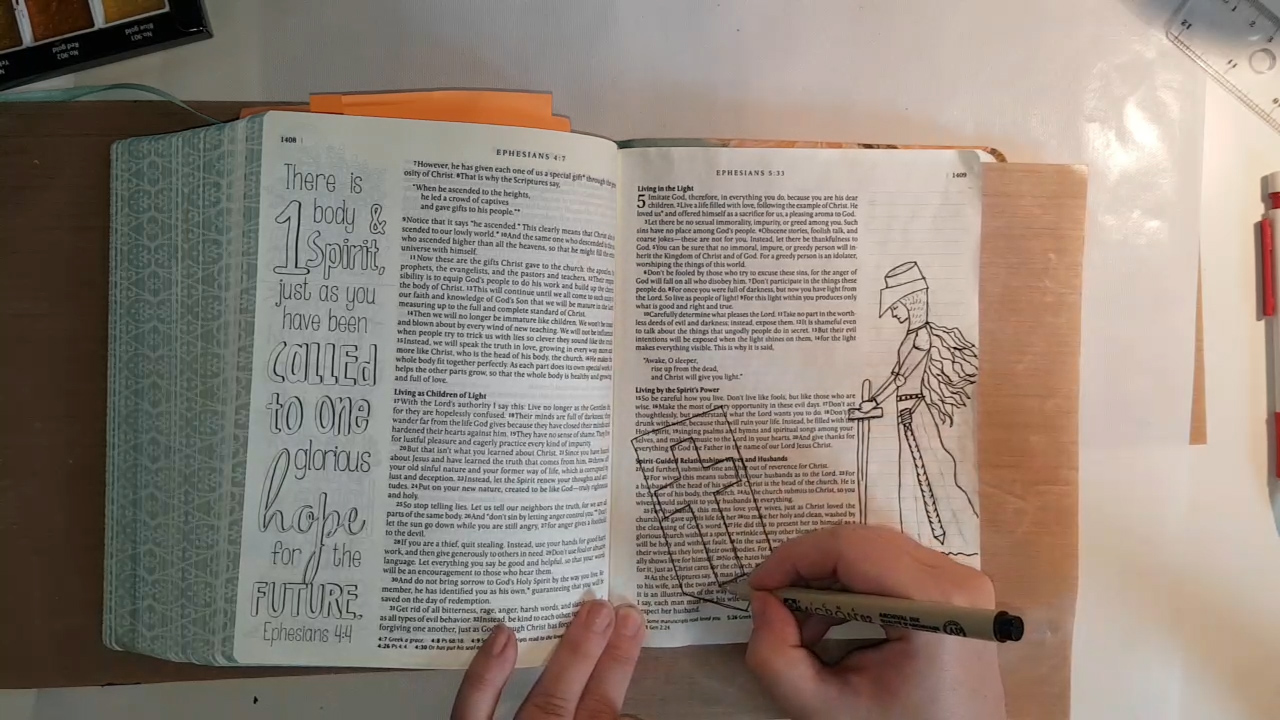 No.901
Blue gold
No.902
Red gold
1408
EPHESIANS 4:7
There is
body &
1
Spirit,
just as you
have been
CALLED
to one
glorious
hope
for the
FUTURE.
Ephesians 4:4
7However, he has given each one of us a special gift* through the
osity of Christ. 8That is why the Scriptures say,
"When he ascended to the heights,
he led a crowd of captives
and gave gifts to his people."*
9Notice that it says "he ascended." This clearly means that Christ
scended to our lowly world.* 10And the same one who descended is the
who ascended higher than all the heavens, so that he might fill the
universe with himself.
11Now these are the gifts Christ gave to the church: the apostles,
prophets, the evangelists, and the pastors and teachers. 12Their
sibility is to equip God's people to do his work and build up the
the body of Christ. 13This will continue until we all come to such
our faith and knowledge of God's Son that we will be mature in the
measuring up to the full and complete standard of Christ.
14Then we will no longer be immature like children. We won't be
and blown about by every wind of new teaching. We will not be influenced
when people try to trick us with lies so clever they sound like the
15Instead, we will speak the truth in love, growing in every way more
more like Christ, who is the head of his body, the church. 16He makes the
whole body fit together perfectly. As each part does its own special work, it
helps the other parts grow, so that the whole body is healthy and growing
and full of love.
Living as Children of Light
17With the Lord's authority I say this: Live no longer as the Gentiles do,
for they are hopelessly confused. 18Their minds are full of darkness; they
wander far from the life God gives because they have closed their minds
hardened their hearts against him. 19They have no sense of shame. They live
for lustful pleasure and eagerly practice every kind of impurity.
20But that isn't what you learned about Christ. 21Since you have heard
about Jesus and have learned the truth that comes from him, 22throw off
your old sinful nature and your former way of life, which is corrupted by
lust and deception. 23Instead, let the Spirit renew your thoughts and
tudes. 24Put on your new nature, created to be like God—truly righteous
and holy.
25So stop telling lies. Let us tell our neighbors the truth, for we are all
parts of the same body. 26And "don't sin by letting anger control you."* Don't
let the sun go down while you are still angry, 27for anger gives a foothold
to the devil.
28If you are a thief, quit stealing. Instead, use your hands for good hard
work, and then give generously to others in need. 29Don't use foul or abusive
language. Let everything you say be good and helpful, so that your words
will be an encouragement to those who hear them.
30And do not bring sorrow to God's Holy Spirit by the way you live. Re-
member, he has identified you as his own,* guaranteeing that you will be
saved on the day of redemption.
31Get rid of all bitterness, rage, anger, harsh words, and
as all types of evil behavior. 32Instead, be kind to each other,
forgiving one another, just as God through Christ has
4:7 Greek a grace. 4:8 Ps 68:18.
4:26 Ps 4:4. 4:30 Or has put his seal on
EPHESIANS 5:33
1409
Living in the Light
5 Imitate God, therefore, in everything you do, because you are his dear
children. 2Live a life filled with love, following the example of Christ. He
loved us* and offered himself as a sacrifice for us, a pleasing aroma to God.
3Let there be no sexual immorality, impurity, or greed among you. Such
sins have no place among God's people. 4Obscene stories, foolish talk, and
coarse jokes—these are not for you. Instead, let there be thankfulness to
God. 5You can be sure that no immoral, impure, or greedy person will in-
herit the Kingdom of Christ and of God. For a greedy person is an idolater,
worshiping the things of this world.
6Don't be fooled by those who try to excuse these sins, for the anger of
God will fall on all who disobey him. 7Don't participate in the things these
people do. 8For once you were full of darkness, but now you have light from
the Lord. So live as people of light! 9For this light within you produces only
what is good and right and true.
10Carefully determine what pleases the Lord. 11Take no part in the worth-
less deeds of evil and darkness; instead, expose them. 12It is shameful even
to talk about the things that ungodly people do in secret. 13But their evil
intentions will be exposed when the light shines on them, 14for the light
makes everything visible. This is why it is said,
"Awake, O sleeper,
rise up from the dead,
and Christ will give you light."
Living by the Spirit's Power
15So be careful how you live. Don't live like fools, but like those who are
wise. 16Make the most of every opportunity in these evil days. 17Don't act
thoughtlessly, but understand what the Lord wants you to do. 18Don't be
drunk with wine, because that will ruin your life. Instead, be filled with the
Holy Spirit, 19singing psalms and hymns and spiritual songs among your-
selves, and making music to the Lord in your hearts. 20And give thanks for
everything to God the Father in the name of our Lord Jesus Christ.
Spirit-Guided Relationships: Wives and Husbands
21And further, submit to one another out of reverence for Christ.
22For wives, this means submit to your husbands as to the Lord. 23For
a husband is the head of his wife as Christ is the head of the church. He is
the Savior of his body, the church. 24As the church submits to Christ, so you
wives should submit to your husbands in everything.
25For husbands, this means love your wives, just as Christ loved the
church. He gave up his life for her 26to make her holy and clean, washed by
the cleansing of God's word. 27He did this to present her to himself as a
glorious church without a spot or wrinkle or any other
will be holy and without fault. 28In the same way,
their wives as they love their own bodies. For a
ally shows love for himself. 29No one hates
for it, just as Christ cares for the church.
31As the Scriptures say, "A man
to his wife, and the two are
It is an illustration of the way
I say, each man must love his wife
respect her husband.
Some manuscripts read loved you.
Gen 2:24
5:26 Greek